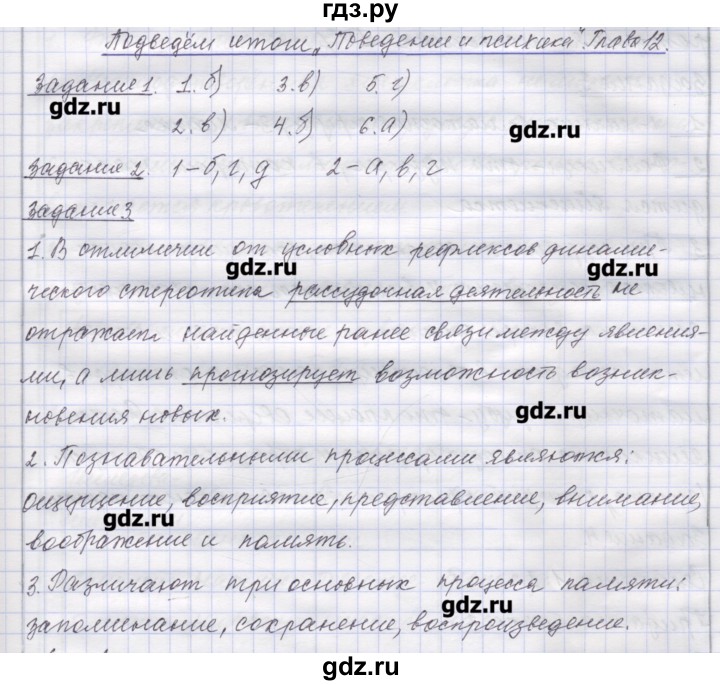 гдз.ру
Подведём итоги „Поведение и психика" Глава 12.
Задание 1. 1. б) 3. в) 5. г)
gdz.ru
2. в) 4. б) 6. а)
gdz.ru
Задание 2. 1-б, г, д 2-а, в, г
Задание 3
1. В отличие от условных рефлексов динами-
gdz.ru gdz.ru
ческого стереотипа рассудочная деятельность не
отражает найденные ранее связи между явлени-
ями, а лишь прогнозирует возможность возник-
новения новых.
gdz.ru
2. Познавательными процессами являются:
ощущение, восприятие, представление, внимание,
gdz.ru
воображение и память.
3. Различают три основных процесса памяти:
gdz.ru
запоминание, сохранение, воспроизведение.
gdz.ru